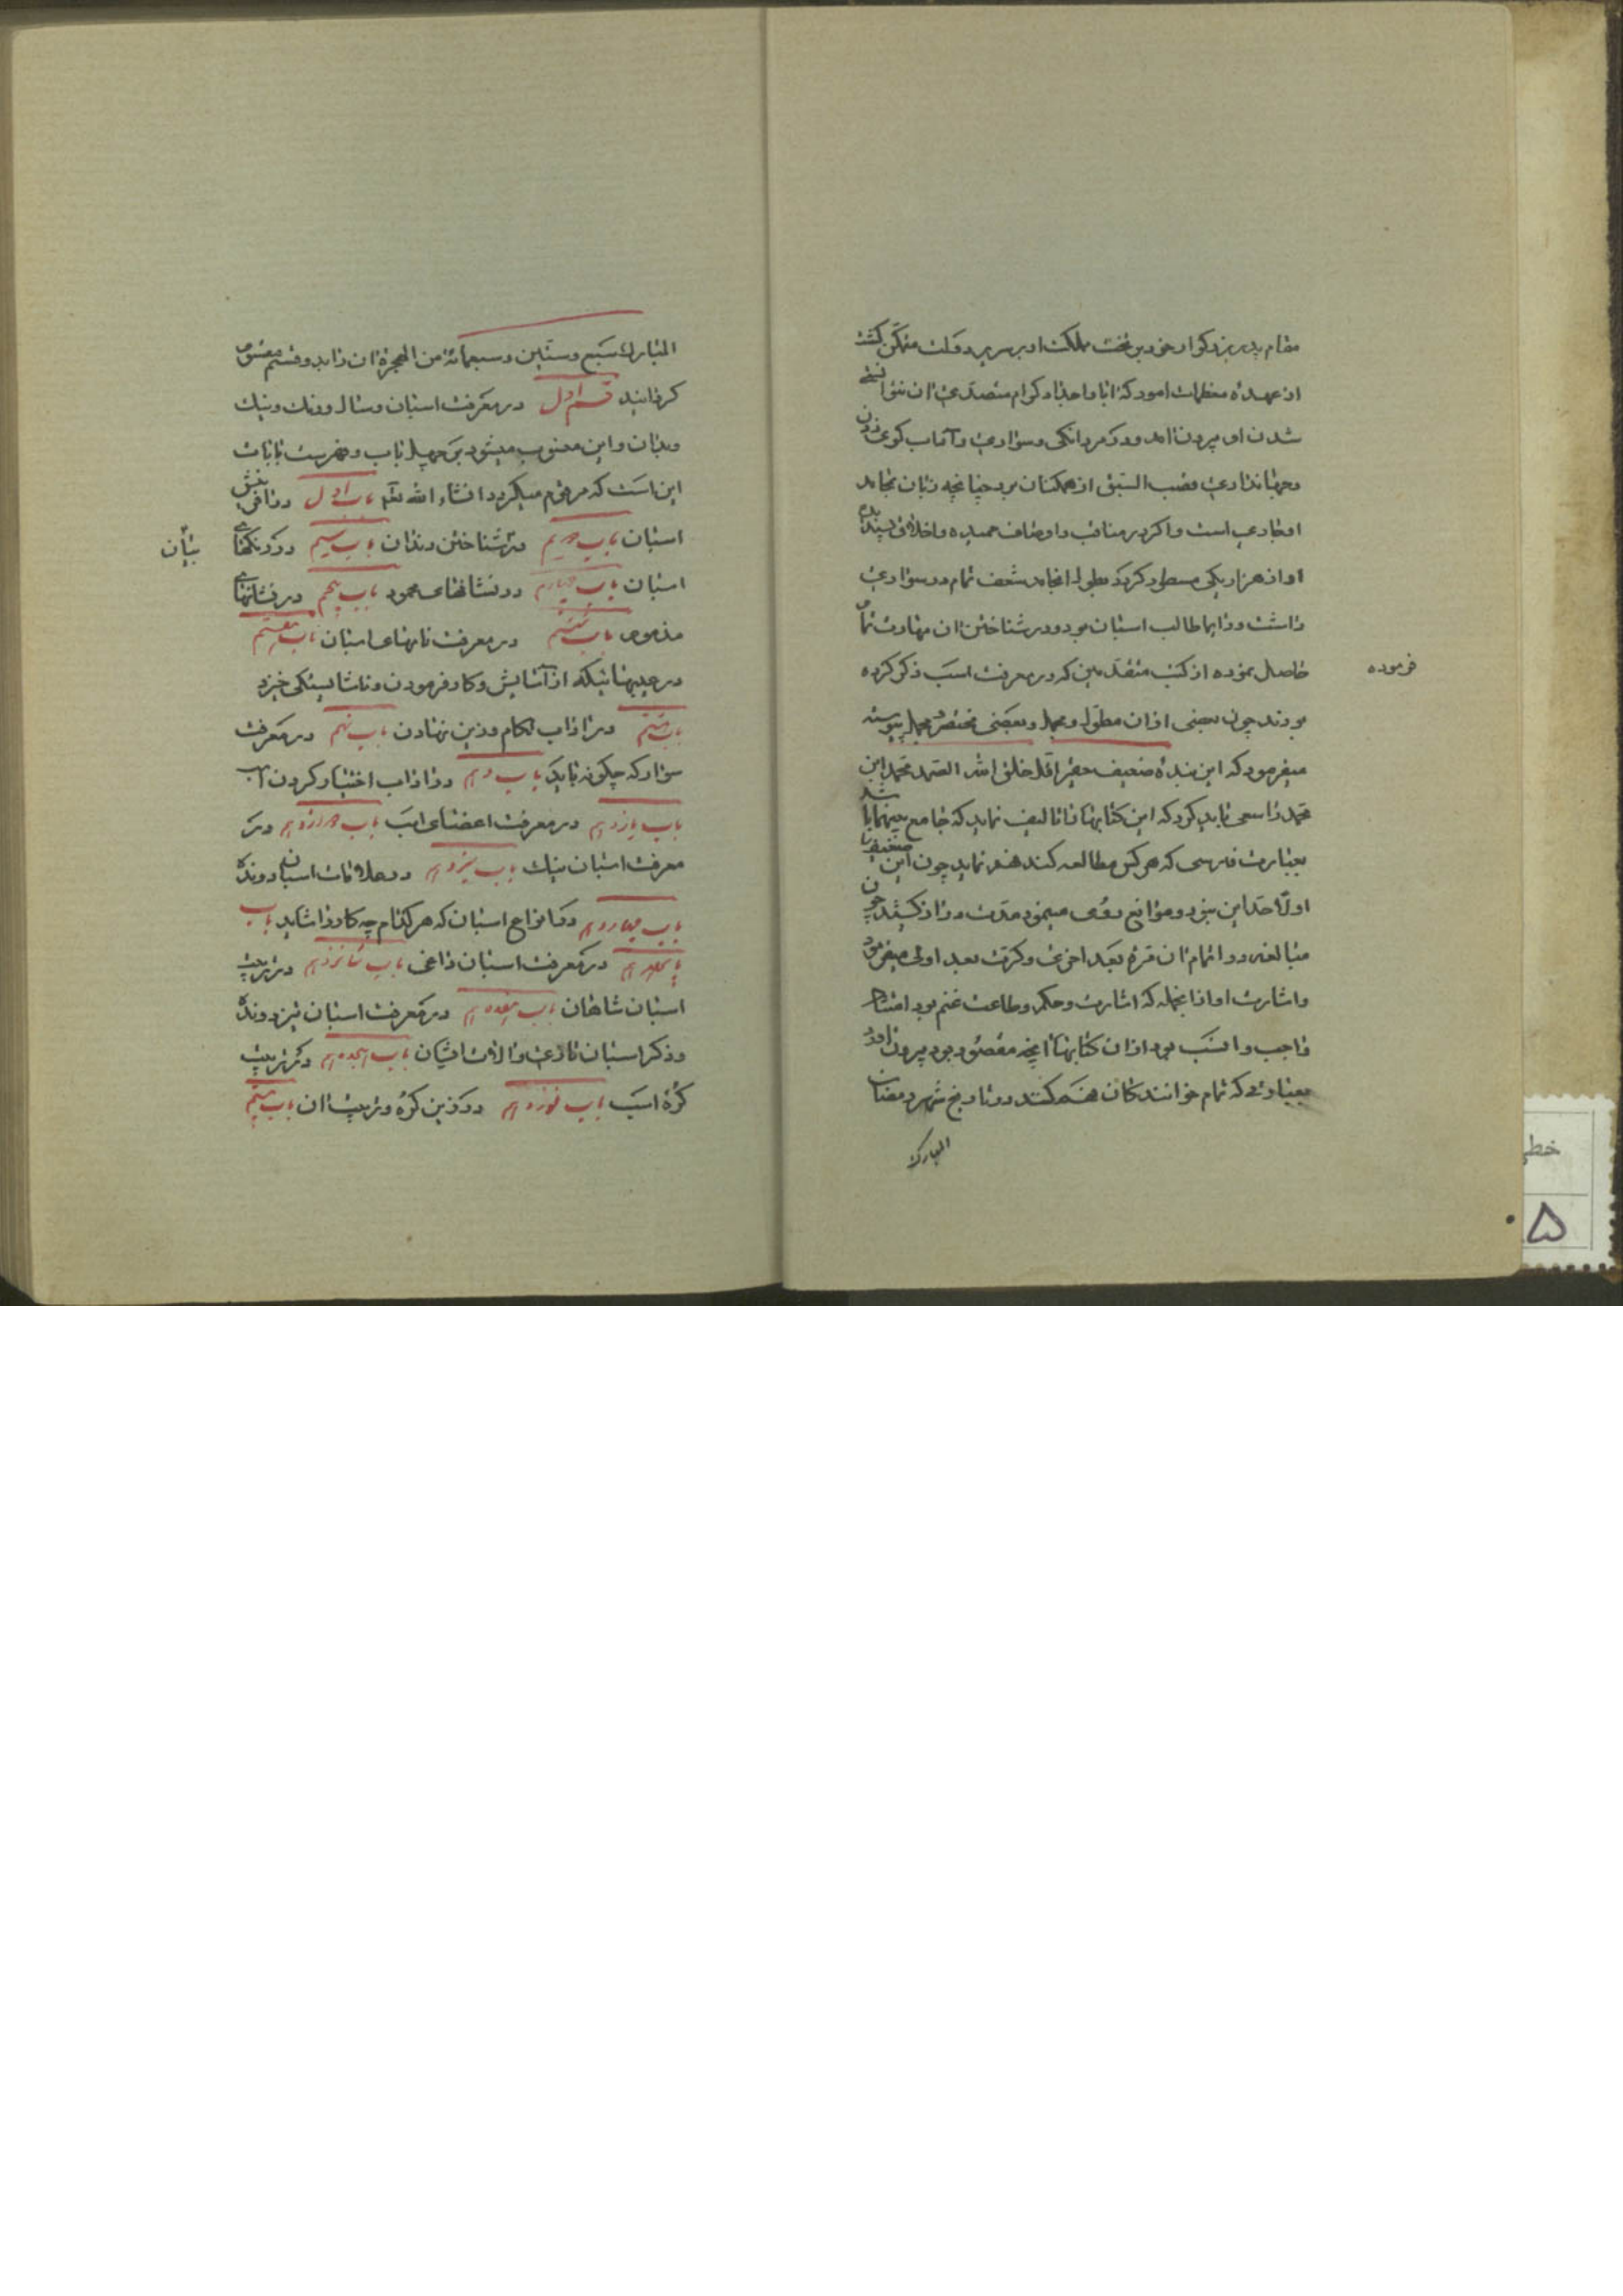 مقام پدر بزرگوار خود بر تخت مملکت و بر سریر دولت متمکن گشت
از عهده معظمات امور که ابا و اجداد کرام متصدی آن
شدن او بیرون آمد و در مردانگی و سواری و آداب کوی زدن
و جهانداری قصب السبق از همکنان برد چنانچه زبان
است و اگر در مناقب و اوصاف حمیده و اخلاق پسندیده
او از هزار یکی مسطور گردد بطول انجامد شعف تمام در سواری
داشت و دایما طالب اسبان بود و در شناختن آن مهارت تمام
حاصل نموده از کتب متقدمین که در معرفت اسب ذکر کرده
فرموده
بودند چون بعضی از آن مطول و مجمل و بعضی مختصر مجمل
میفرمود که این بنده ضعیف حقیر اقل خلق الله الصمد محمد ابن
محمد را سعی باید کرد که این کتابها را تالیف نماید که جامع باشد
بعبارت فارسی که هر کس مطالعه کند فهم نماید چون این ضعیف را
اولا حد این نبود و موانع روی مینمود مدت دراز کشید چون
مبالغه در اتمام آن مرة بعد اخری و کرة بعد اولی میفرمود
و اشارت او از آنجمله که اشارت و حکم و طاعت غنم بود
واجب و انسب بود از آن کتابها آنچه مقصود بود بیرون آورد
بعبارتی که تمام خوانندگان فهم کنند در تاریخ شهر رمضان
المبارک
المبارک سبع و ستین و سبعمائة من الهجرة آن را بدو قسم
گردانید قسم اول در معرفت اسبان و سال و رنگ و نیک
و بدان و این منسوب میشود بر چهل باب و فهرست بابات
این است که مرقوم میگردد انشاء الله تعالی باب اول در آفرینش
اسبان باب دویم در شناختن دندان باب سیم در رنگهای
بیان
اسبان باب چهارم در نشانهای محمود باب پنجم در نشانهای
مذموم باب ششم در معرفت نامهای اسبان باب هفتم
در عیبهائیکه از آسایش و کار فرمودن و ناشایستگی خیزد
باب هشتم در آداب لگام و زین نهادن باب نهم در معرفت
سوار که چگونه باید باب دهم در آداب اختیار کردن اسب
باب یازدهم در معرفت اعضای اسب باب دوازدهم در
معرفت اسبان نیک باب سیزدهم در علامات اسبان دونده
باب چهاردهم در انواع اسبان که هر کدام چه کار را شاید باب
پانزدهم در معرفت اسبان داغی باب شانزدهم در تربیت
اسبان شاهان باب هفدهم در معرفت اسبان تیز دونده
و ذکر اسبان تازی و آلات ایشان باب هجدهم در تربیت
کره اسب باب نوزدهم در زین کره و تربیت آن باب بیستم
خطی
۵